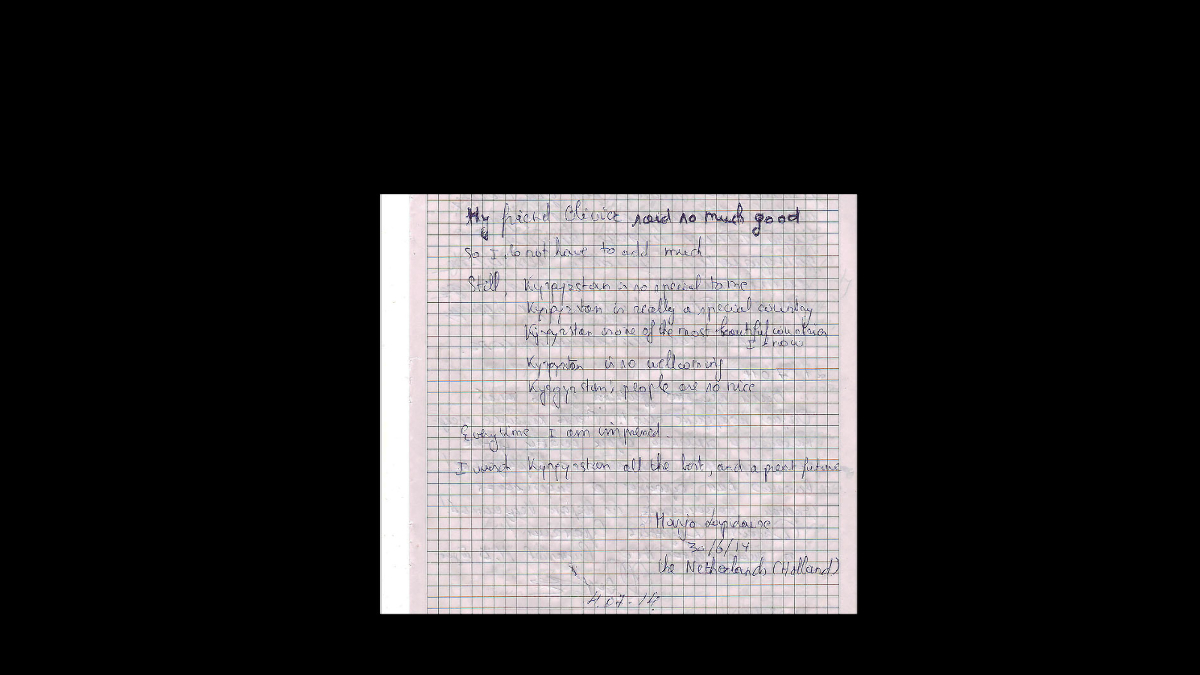 My friend Olivier said so much good
So I do not have to add much
Still, Kyrgyzstan is so special to me
Kyrgyzstan is really a special country
Kyrgyzstan is one of the most beautiful countries
I know
Kyrgyzstan is so wellcoming
Kyrgyzstan's people are so nice
Every time I am impressed.
I wish Kyrgyzstan all the best, and a great future
Marjo
30/6/14
the Netherlands (Holland)
4.07-14